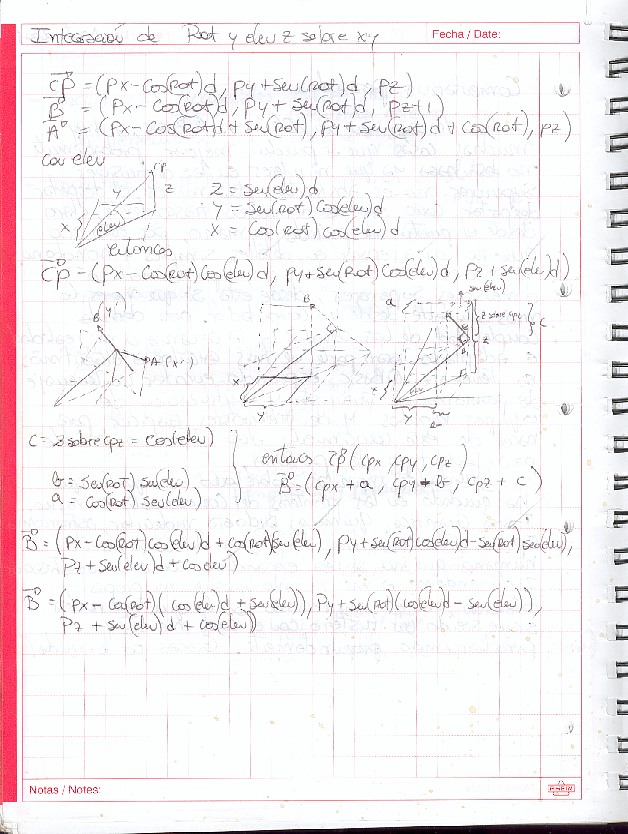 Integración de Rot y elev z sobre xy
Fecha / Date:
CP = (Px - Cos(Rot)d, Py + Sen(Rot)d, Pz)
B = (Px - Cos(Rot)d, Py + Sen(Rot)d, Pz+1)
A = (Px - Cos(Rot)d + Sen(Rot), Py + Sen(Rot)d + Cos(Rot), Pz)
con elev
CP
Y
Z
X
elev
Z = Sen(elev)d
Y = Sen(Rot)Cos(elev)d
X = Cos(Rot)Cos(elev)d
entonces
CP = (Px - Cos(Rot)Cos(elev)d, Py + Sen(Rot)Cos(elev)d, Pz + Sen(elev)d)
B
A (x
B
X
Y
a
sen(elev)
z sobre cpz
c
z
X
Y
C = z sobre cpz = Cos(elev)
b = Sen(Rot) Sen(elev)
a = Cos(Rot) Sen(elev)
entonces (cpx, cpy, cpz)
B = (cpx + a, cpy + b, cpz + c)
B = (Px - Cos(Rot)Cos(elev)d + Cos(Rot)Sen(elev), Py + Sen(Rot)Cos(elev)d - Sen(Rot)Sen(elev),
Pz + Sen(elev)d + Cos(elev))
B = (Px - Cos(Rot)(Cos(elev)d + Sen(elev)), Py + Sen(Rot)(Cos(elev)d - Sen(elev)),
Pz + Sen(elev)d + Cos(elev))
Notas / Notes: